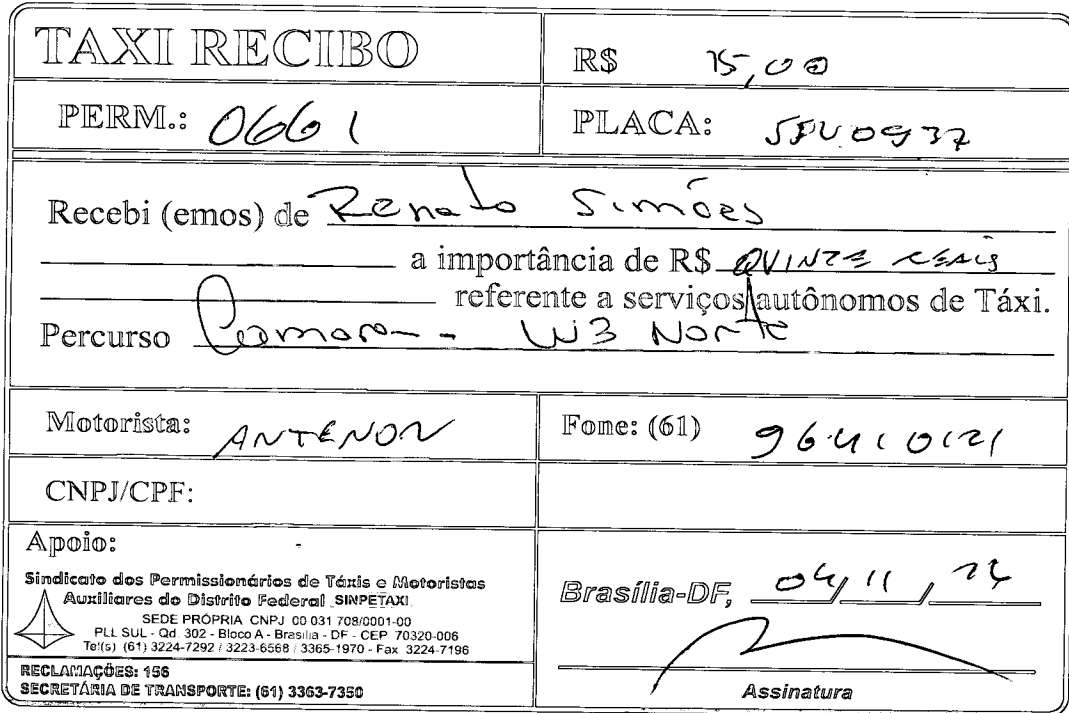 TAXI RECIBO
R$ 15,00
PERM.: 0661
PLACA:
Recebi (emos) de Renato Simões
a importância de R$ QUINZE REAIS
referente a serviços autônomos de Táxi.
Percurso Camara - W3 Norte
Motorista: ANTENOR
Fone: (61)
CNPJ/CPF:
Apoio:
Sindicato dos Permissionários de Táxis e Motoristas
Auxiliares do Distrito Federal SINPETAXI
SEDE PRÓPRIA CNPJ 00 031 708/0001-00
PLL SUL - Qd. 302 - Bloco A - Brasília - DF - CEP 70320-006
Tel(s) (61) 3224-7292 / 3223-6568 / 3365-1970 - Fax 3224-7196
RECLAMAÇÕES: 156
SECRETÁRIA DE TRANSPORTE: (61) 3363-7350
Brasília-DF, 04/11/
Assinatura